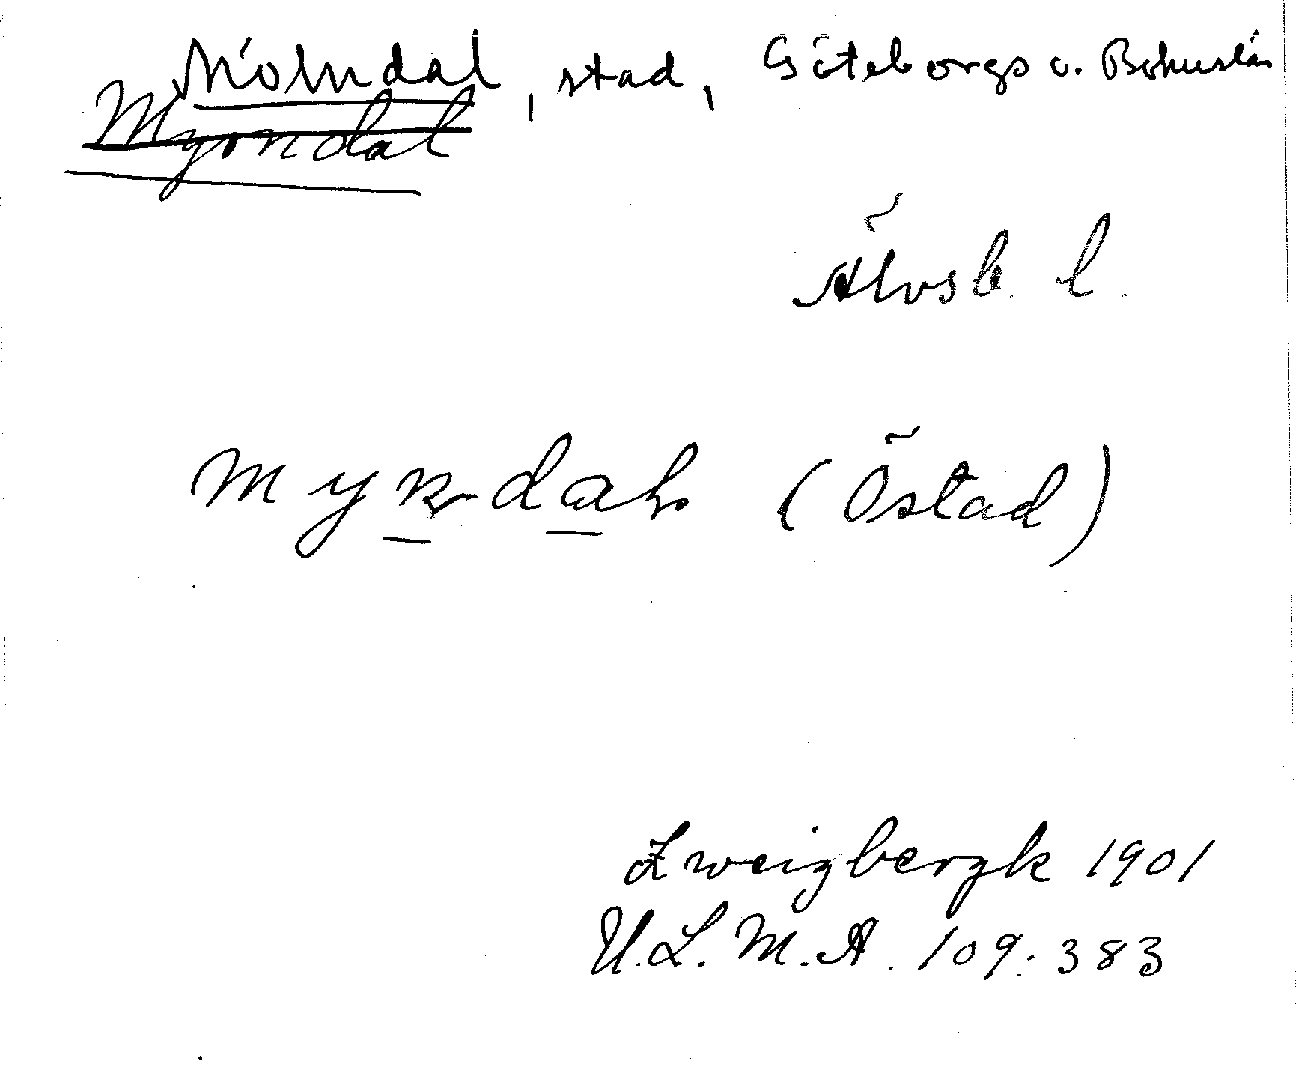 Mölndal, stad, Göteborgs o. Bohuslän
Myöndal
Älvsb. l.
(Östad)
Zweigbergk 1901
U.L.M.A. 109:383